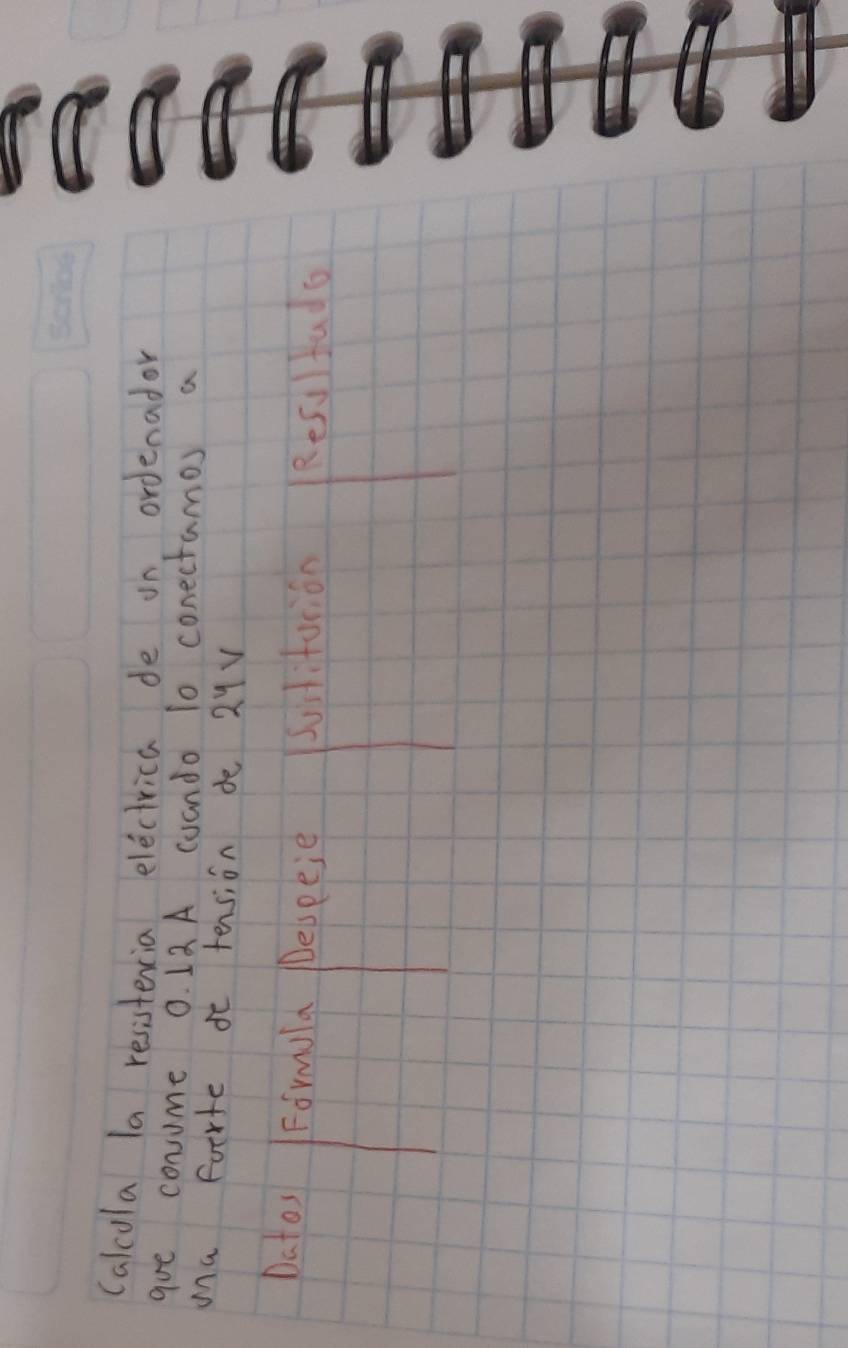 Scribe
Calcula la resistencia eléctrica de un ordenador
que consume 0.12 A cuando lo conectamos a
una fuente de tensión de 24V
Datos Fórmula Despeje Sustitución Resultado